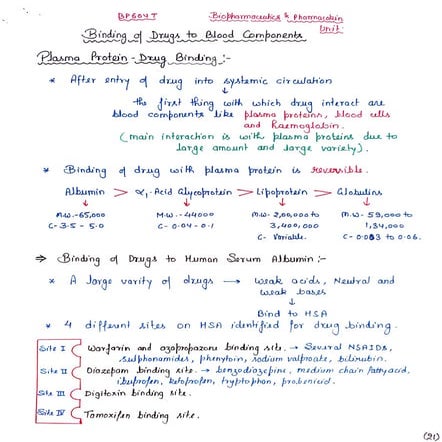 BP604T
Biopharmaceutics & Pharmacokin
Unit-
Binding of Drugs to Blood Components
Plasma Protein - Drug Binding :-
* After entry of drug into systemic circulation
↓
the first thing with which drug interact are
blood components like plasma proteins, blood cells
and Haemoglobin.
(main interaction is with plasma proteins due to
large amount and large variety).
* Binding of drug with plasma protein is reversible.
Albumin > α₁-Acid Glycoprotein > Lipoprotein > Globulins
M.W.-65,000 M.W.-44000 M.W.-2,00,000 to M.W.-59,000 to
C-3.5-5.0 C-0.04-0.1 3,400,000 1,34,000
C-Variable. C-0.003 to 0.06.
⇒ Binding of Drugs to Human Serum Albumin :-
* A large varity of drugs → weak acids, Neutral and
weak bases
↓
Bind to HSA
* 4 different sites on HSA identified for drug binding.
Site I Warfarin and azapropazone binding site. → Several NSAIDs,
sulphonamides, phenytoin, sodium valproate, bilirubin.
Site II Diazepam binding site. → benzodiazepine, medium chain fatty acid,
ibuprofen, ketoprofen, tryptophan, probenicid.
Site III Digitoxin binding site.
Site IV Tamoxifen binding site.
(21)